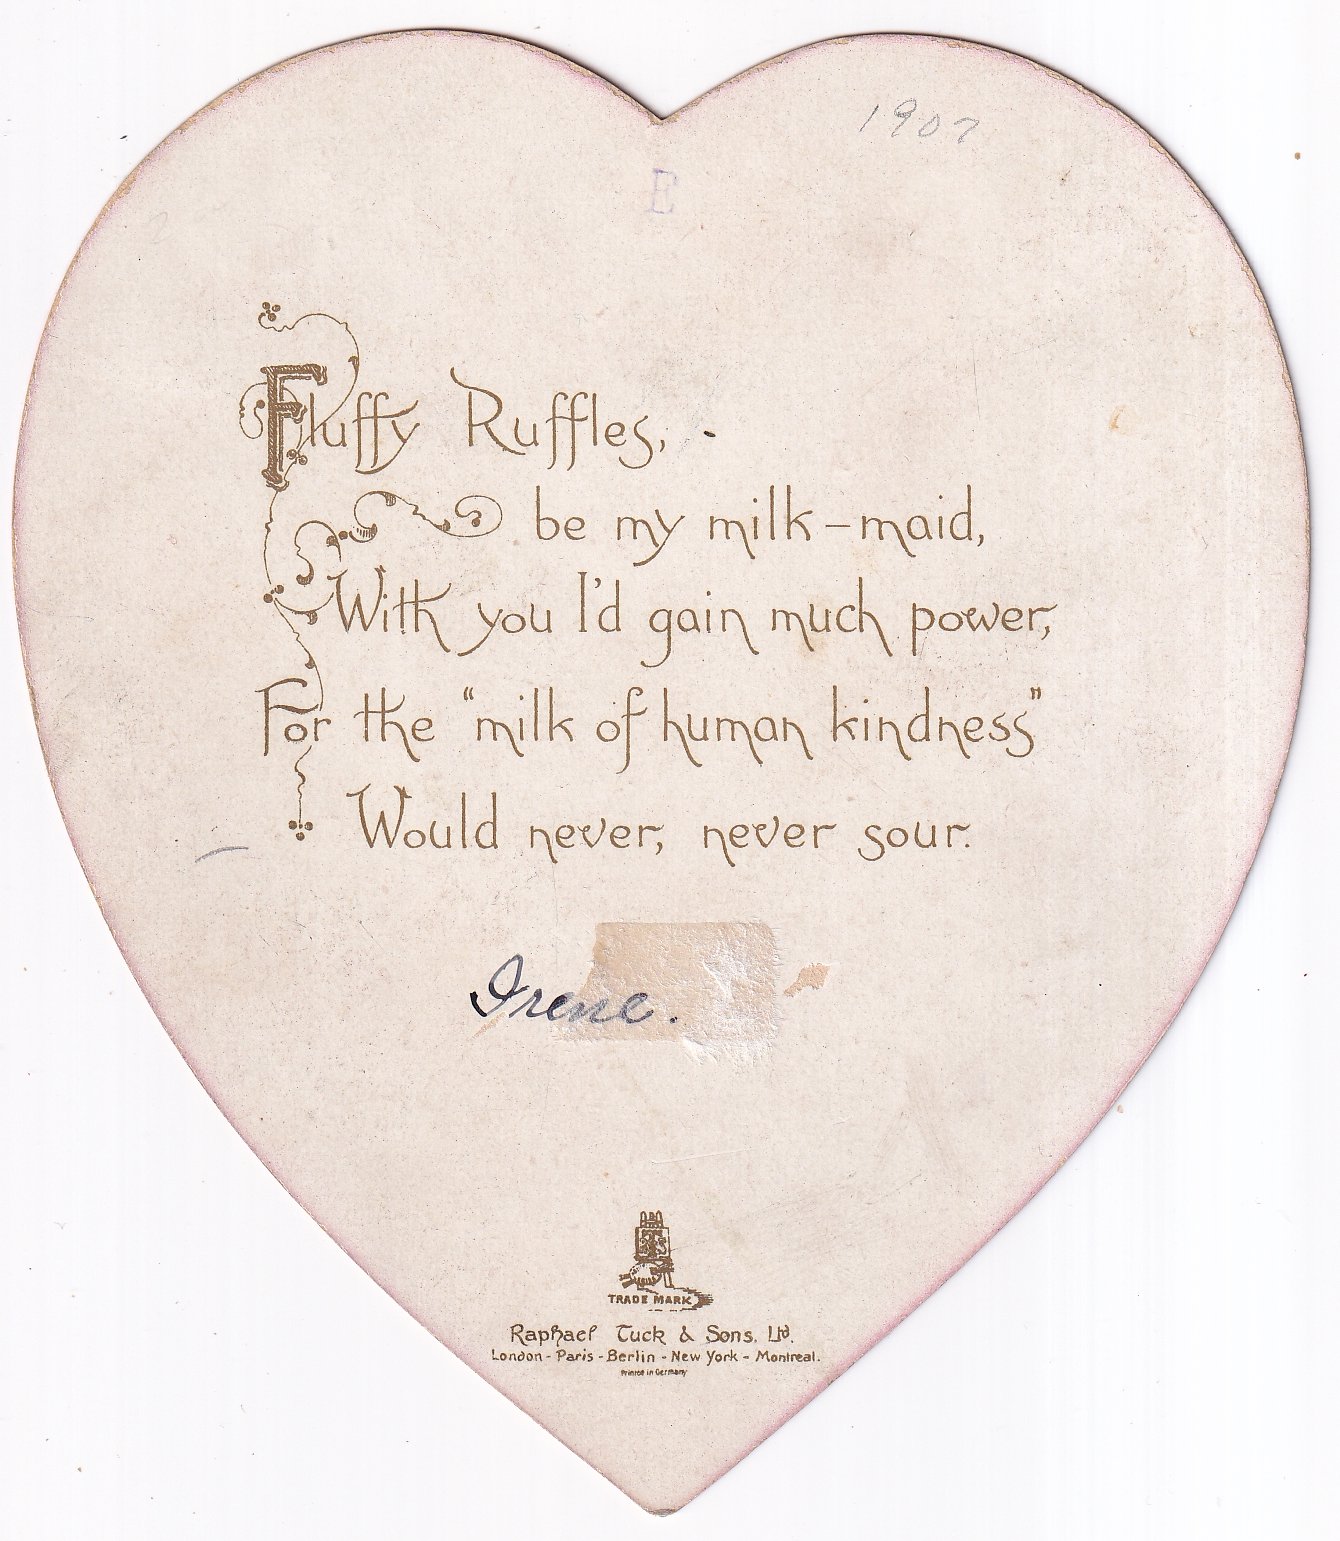 1907
E
Fluffy Ruffles,
be my milk-maid,
With you I'd gain much power,
For the “milk of human kindness”
Would never, never sour.
Irene.
TRADE MARK
Raphael Tuck & Sons. Ltd.
London - Paris - Berlin - New York - Montreal.
Printed in Germany